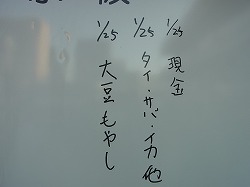 1/25 現金
1/25 タイ・サバ・イカ他
1/25 大豆もやし